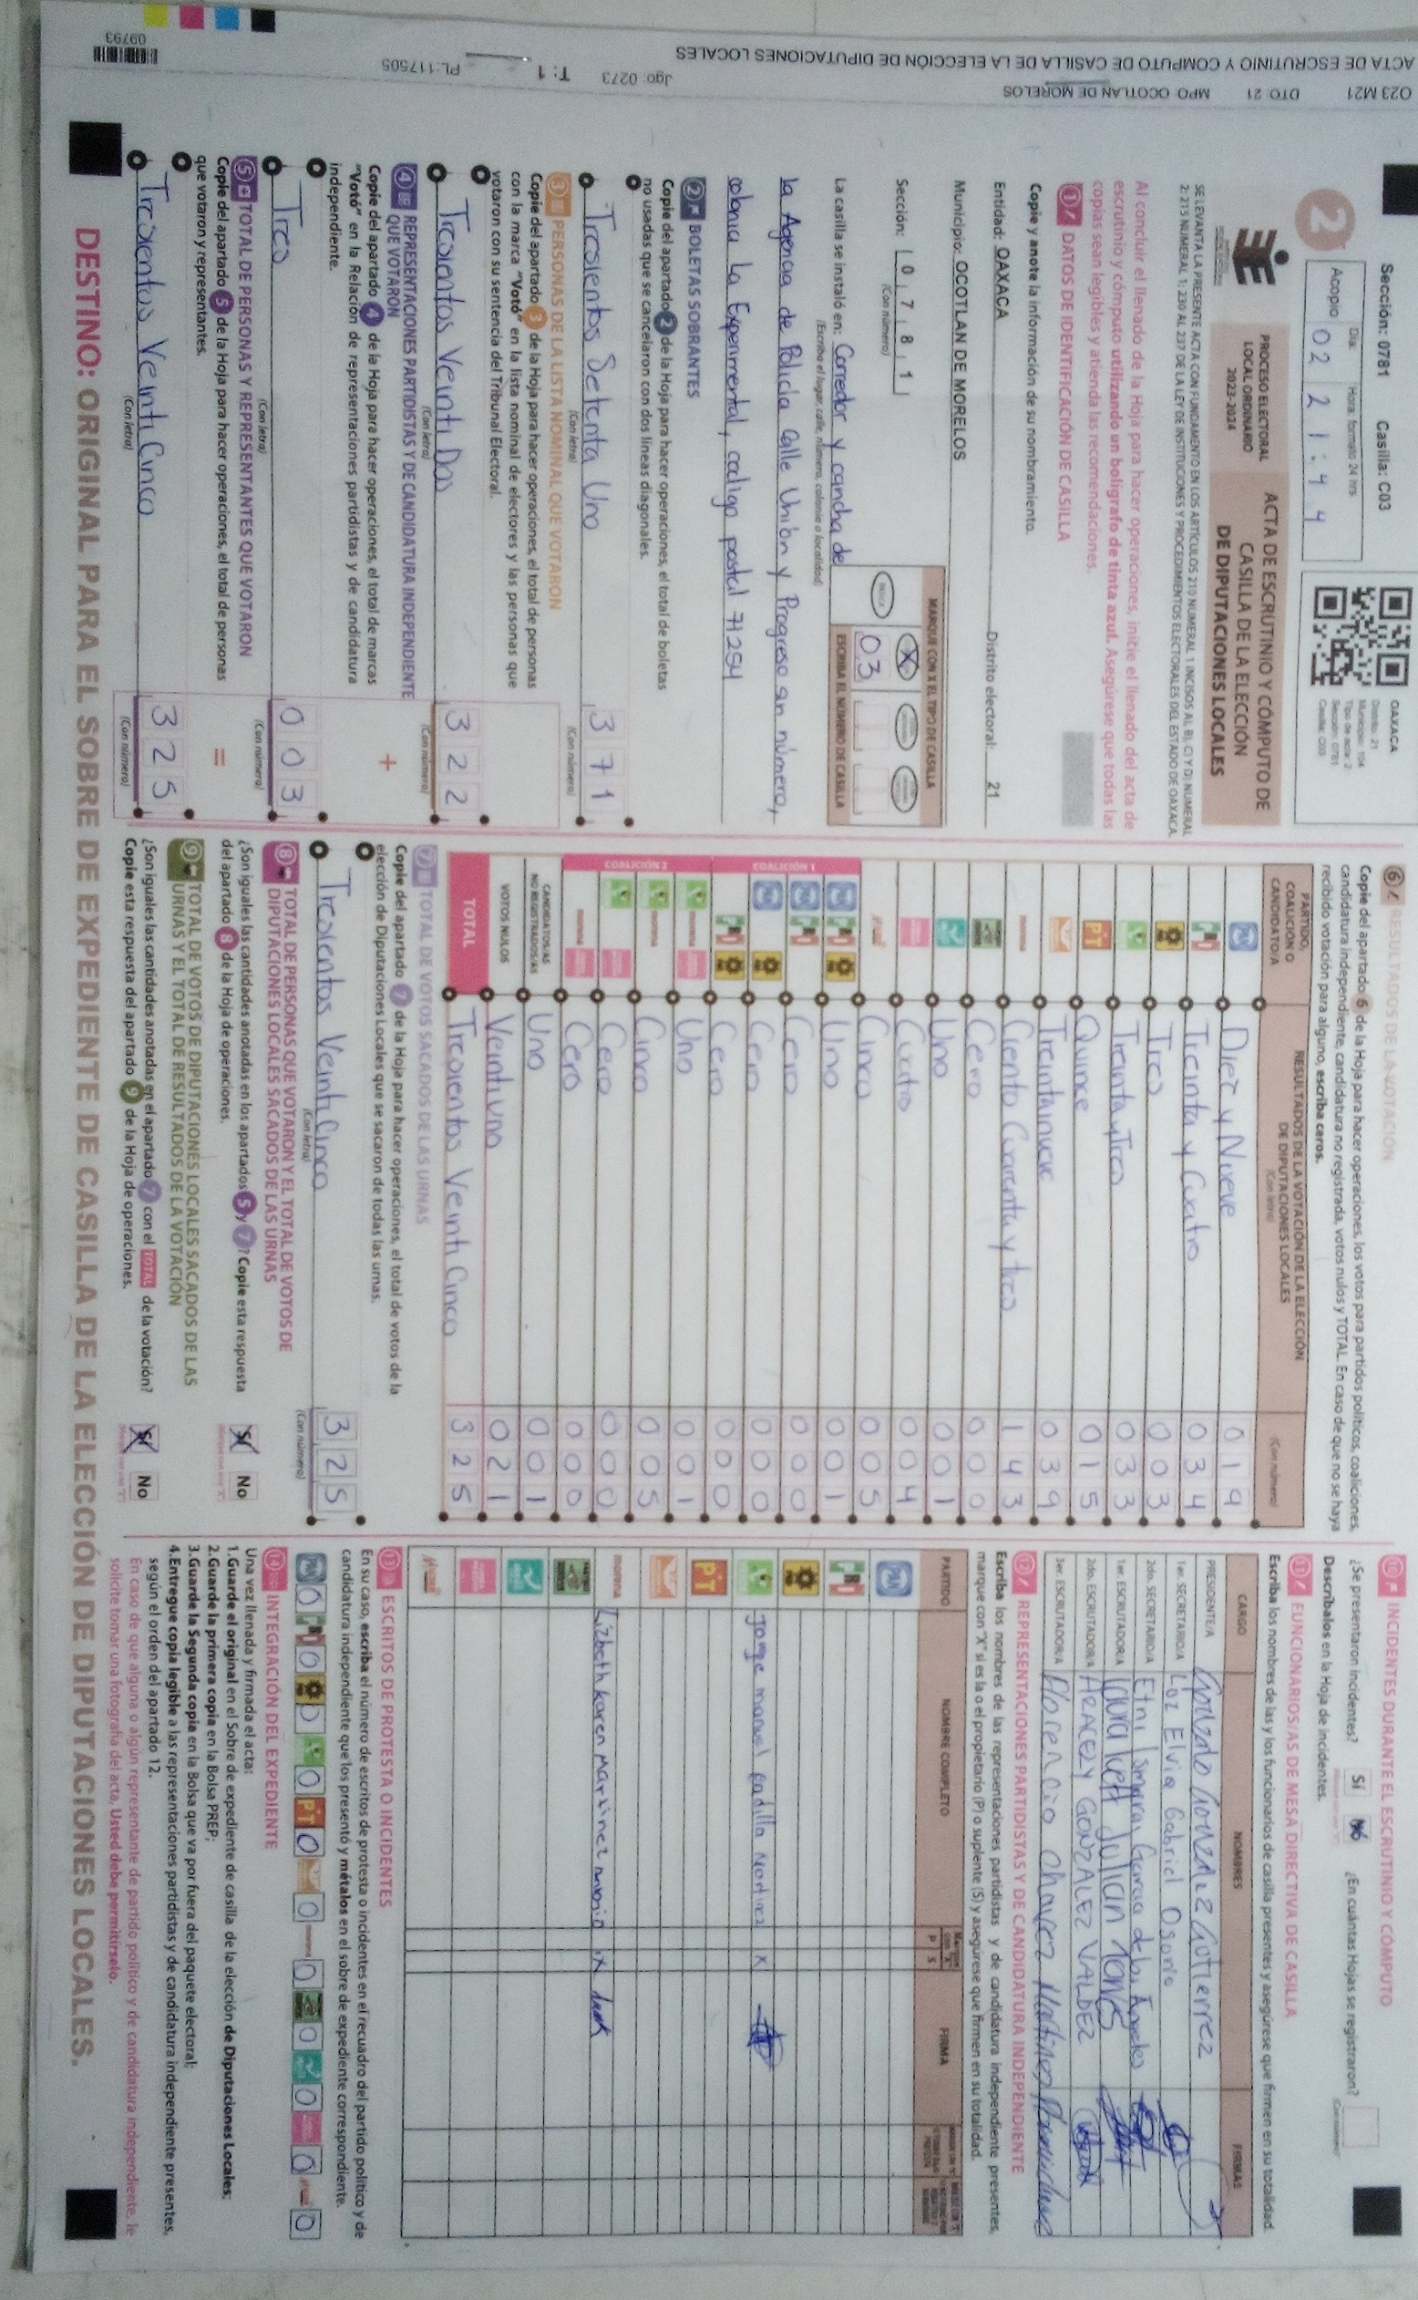 O23 M21 DTO 21 MPO OCOTLAN DE MORELOS
ACTA DE ESCRUTINIO Y CÓMPUTO DE CASILLA DE LA ELECCIÓN DE DIPUTACIONES LOCALES
Jgo: 0273 T: 1 PL:117505
09793
Sección: 0781 Casilla: C03
2
Día: Hora: formato 24 hrs
Acopio 02 21:44
OAXACA
Distrito: 21
Sección: 0781
Casilla: C03
PROCESO ELECTORAL
LOCAL ORDINARIO
2023-2024
ACTA DE ESCRUTINIO Y CÓMPUTO DE
CASILLA DE LA ELECCIÓN
DE DIPUTACIONES LOCALES
Al concluir el llenado de la Hoja para hacer operaciones, inicie el llenado del acta de
escrutinio y cómputo utilizando un bolígrafo de tinta azul. Asegúrese que todas las
copias sean legibles y atienda las recomendaciones.
1 DATOS DE IDENTIFICACIÓN DE CASILLA
Copie y anote la información de su nombramiento.
Entidad: OAXACA Distrito electoral: 21
Municipio: OCOTLAN DE MORELOS
Sección: 0 7 8 1
(Con número)
MARQUE CON X EL TIPO DE CASILLA
X
ESCRIBA EL NÚMERO DE CASILLA
03
La casilla se instaló en: Corredor y cancha de
(Escriba el lugar, calle, número, colonia o localidad)
la Agencia de Policía calle Unión y Progreso sin número,
colonia la Experimental, codigo postal 71254
2 BOLETAS SOBRANTES
Copie del apartado 2 de la Hoja para hacer operaciones, el total de boletas
no usadas que se cancelaron con dos líneas diagonales.
Tresientos Setenta Uno 371
(Con letra) (Con número)
3 PERSONAS DE LA LISTA NOMINAL QUE VOTARON
Copie del apartado 3 de la Hoja para hacer operaciones, el total de personas
con la marca "Votó" en la lista nominal de electores y las personas que
votaron con su sentencia del Tribunal Electoral.
Tresientos Veinti Dos 322
(Con letra) (Con número)
4 REPRESENTACIONES PARTIDISTAS Y DE CANDIDATURA INDEPENDIENTE
QUE VOTARON +
Copie del apartado 4 de la Hoja para hacer operaciones, el total de marcas
"Votó" en la Relación de representaciones partidistas y de candidatura
independiente.
Tres 003
(Con letra) (Con número)
5 TOTAL DE PERSONAS Y REPRESENTANTES QUE VOTARON
Copie del apartado 5 de la Hoja para hacer operaciones, el total de personas
que votaron y representantes. =
Tresientos Veinti Cinco 325
(Con letra) (Con número)
6 RESULTADOS DE LA VOTACIÓN
Copie del apartado 6 de la Hoja para hacer operaciones, los votos para partidos políticos, coaliciones,
candidatura independiente, candidatura no registrada, votos nulos y TOTAL. En caso de que no se haya
recibido votación para alguno, escriba ceros.
PARTIDO,
COALICIÓN O
CANDIDATO/A
RESULTADOS DE LA VOTACIÓN DE LA ELECCIÓN
DE DIPUTACIONES LOCALES
(Con letra) (Con número)
PAN Diez y Nueve 019
PRI Treinta y Cuatro 034
Tres 003
Treinta y Tres 033
PT Quince 015
Treinta nueve 039
morena Ciento Cuarenta y tres 143
Cero 000
Uno 001
Cuatro 004
Cinco 005
COALICIÓN 1
Uno 001
Cero 000
Cero 000
Cero 000
COALICIÓN 2
Uno 001
Cinco 005
Cero 000
Cero 000
CANDIDATOS/AS
NO REGISTRADOS/AS Uno 001
VOTOS NULOS Veintiuno 021
TOTAL Tresientos Veinti Cinco 325
7 TOTAL DE VOTOS SACADOS DE LAS URNAS
Copie del apartado 7 de la Hoja para hacer operaciones, el total de votos de la
elección de Diputaciones Locales que se sacaron de todas las urnas.
Tresientos Veinti Cinco 325
(Con letra) (Con número)
8 TOTAL DE PERSONAS QUE VOTARON Y EL TOTAL DE VOTOS DE
DIPUTACIONES LOCALES SACADOS DE LAS URNAS
¿Son iguales las cantidades anotadas en los apartados 5 y 7? Copie esta respuesta
del apartado 8 de la Hoja de operaciones. Sí No
9 TOTAL DE VOTOS DE DIPUTACIONES LOCALES SACADOS DE LAS
URNAS Y EL TOTAL DE RESULTADOS DE LA VOTACIÓN
¿Son iguales las cantidades anotadas en el apartado 7 con el TOTAL de la votación?
Copie esta respuesta del apartado 9 de la Hoja de operaciones. Sí No
10 INCIDENTES DURANTE EL ESCRUTINIO Y CÓMPUTO
¿Se presentaron incidentes? Sí No ¿En cuántas Hojas se registraron?
Descríbalos en la Hoja de incidentes.
11 FUNCIONARIOS/AS DE MESA DIRECTIVA DE CASILLA
Escriba los nombres de las y los funcionarios de casilla presentes y asegúrese que firmen en su totalidad.
CARGO NOMBRES FIRMAS
PRESIDENTE/A Gonzalo González Gutierrez
1er. SECRETARIO/A Luz Elvia Gabriel Osorio
2do. SECRETARIO/A Etni Smara Garcia de los Angeles
1er. ESCRUTADOR/A Laura Lett Julian Torres
2do. ESCRUTADOR/A ARACELY GONZALEZ VALDEZ
3er. ESCRUTADOR/A Florencio Chavez Martinez
12 REPRESENTACIONES PARTIDISTAS Y DE CANDIDATURA INDEPENDIENTE
Escriba los nombres de las representaciones partidistas y de candidatura independiente presentes,
marque con "X" si es la o el propietario (P) o suplente (S) y asegúrese que firmen en su totalidad.
PARTIDO NOMBRE COMPLETO P S FIRMA
PAN
PRI
Jorge manuel padilla Martinez X
PT
morena Lizbeth Karen Martinez X
13 ESCRITOS DE PROTESTA O INCIDENTES
En su caso, escriba el número de escritos de protesta o incidentes en el recuadro del partido político y de
candidatura independiente que los presentó y métalos en el sobre de expediente correspondiente.
0 0 0 0 0 0 0 0 0 0 0
14 INTEGRACIÓN DEL EXPEDIENTE
Una vez llenada y firmada el acta:
1.Guarde el original en el Sobre de expediente de casilla de la elección de Diputaciones Locales;
2.Guarde la primera copia en la Bolsa PREP;
3.Guarde la Segunda copia en la Bolsa que va por fuera del paquete electoral;
4.Entregue copia legible a las representaciones partidistas y de candidatura independiente presentes,
según el orden del apartado 12.
En caso de que alguna o algún representante de partido político y de candidatura independiente, le
solicite tomar una fotografía del acta, Usted debe permitírselo.
DESTINO: ORIGINAL PARA EL SOBRE DE EXPEDIENTE DE CASILLA DE LA ELECCIÓN DE DIPUTACIONES LOCALES.